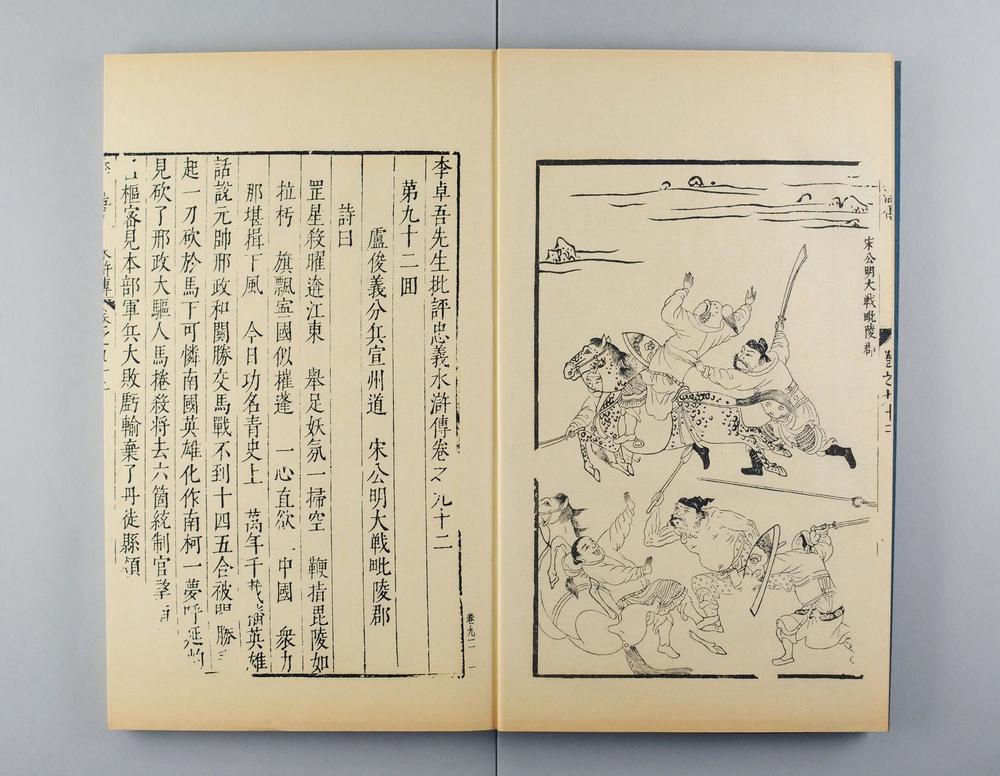 宋公明大戦毗陵郡
李卓吾先生批評忠義水滸傳卷之九十二
第九十二囬
盧俊義分兵宣州道 宋公明大戦毗陵郡
詩曰
罡星殺曜遶江東 舉足妖氛一掃空 鞭指毘陵如
拉朽 旗飄寧國似摧蓬 一心直欲 中國 衆力
那堪揖下風 今日功名青史上 萬年千載 英雄
話說元帥邢政和關勝交馬戰不到十四五合被關勝
起一刀砍於馬下可憐南國英雄化作南柯一夢呼延灼
見砍了邢政大驅人馬捲殺将去六箇統制官望
樞密見本部軍兵大敗虧輸棄了丹徒縣領
水滸傳
卷九二 一